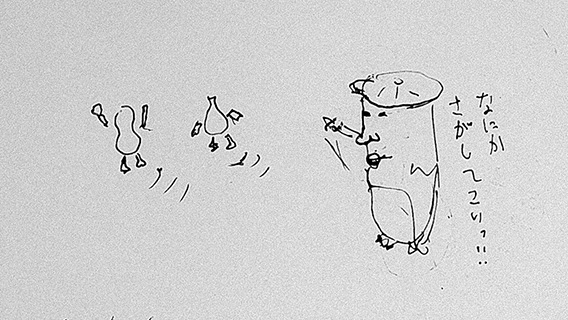 なにか
さがしてこいっ!!